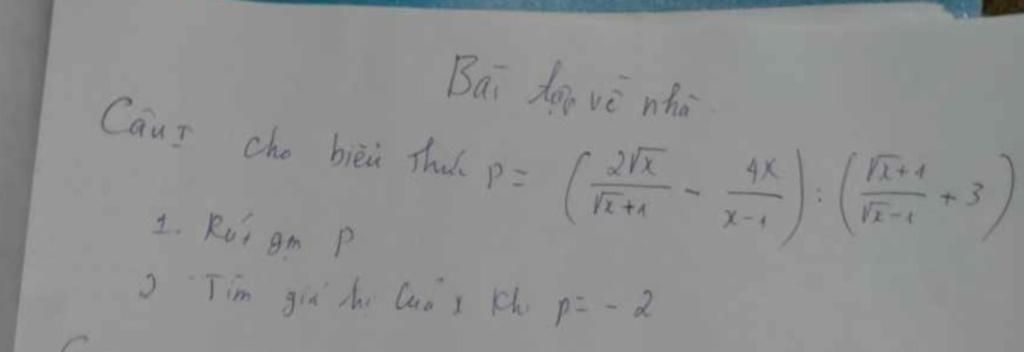 Bài tập về nhà
Câu I cho biểu thức P = (2√x/(√x+1) - 4x/(x-1)) : ((√x+1)/(√x-1) + 3)
1. Rút gọn P
2 Tìm giá trị của x khi P = - 2